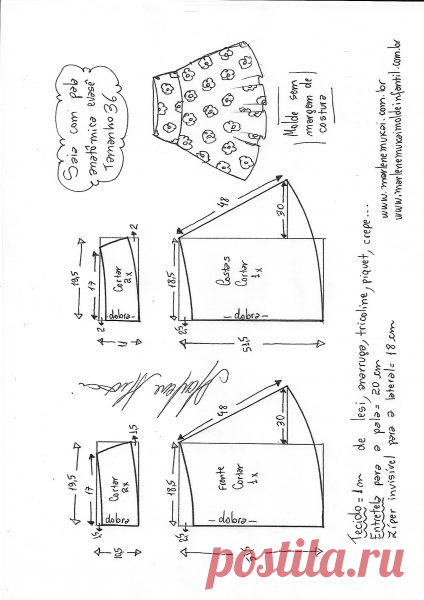 Saia com pala
anatômica evasê
Tamanho 36
Molde sem
margem de
costura
www.marlenemukai.com.br
www.marlenemukaimoldeinfantil.com.br
19,5
17
2
2
Cortar
2x
dobra
48
30
18,5
Costas
Cortar
1x
-dobra-
51,5
Marlene Mukai
19,5
17
1,5
Cortar
2x
dobra
10,5
48
30
18,5
Frente
Cortar
1x
-dobra-
Tecido = 1m de lesi, anarruga, tricoline, piquet, crepe...
Entretela para a pala = 20 cm
Zíper invisível para a lateral = 18 cm
postila.ru